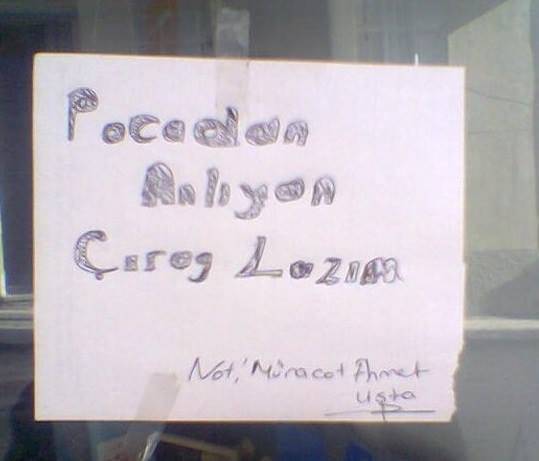 Pocadan
Anlıyan
Çırag Lazım
Not: Müracat Ahmet
Usta